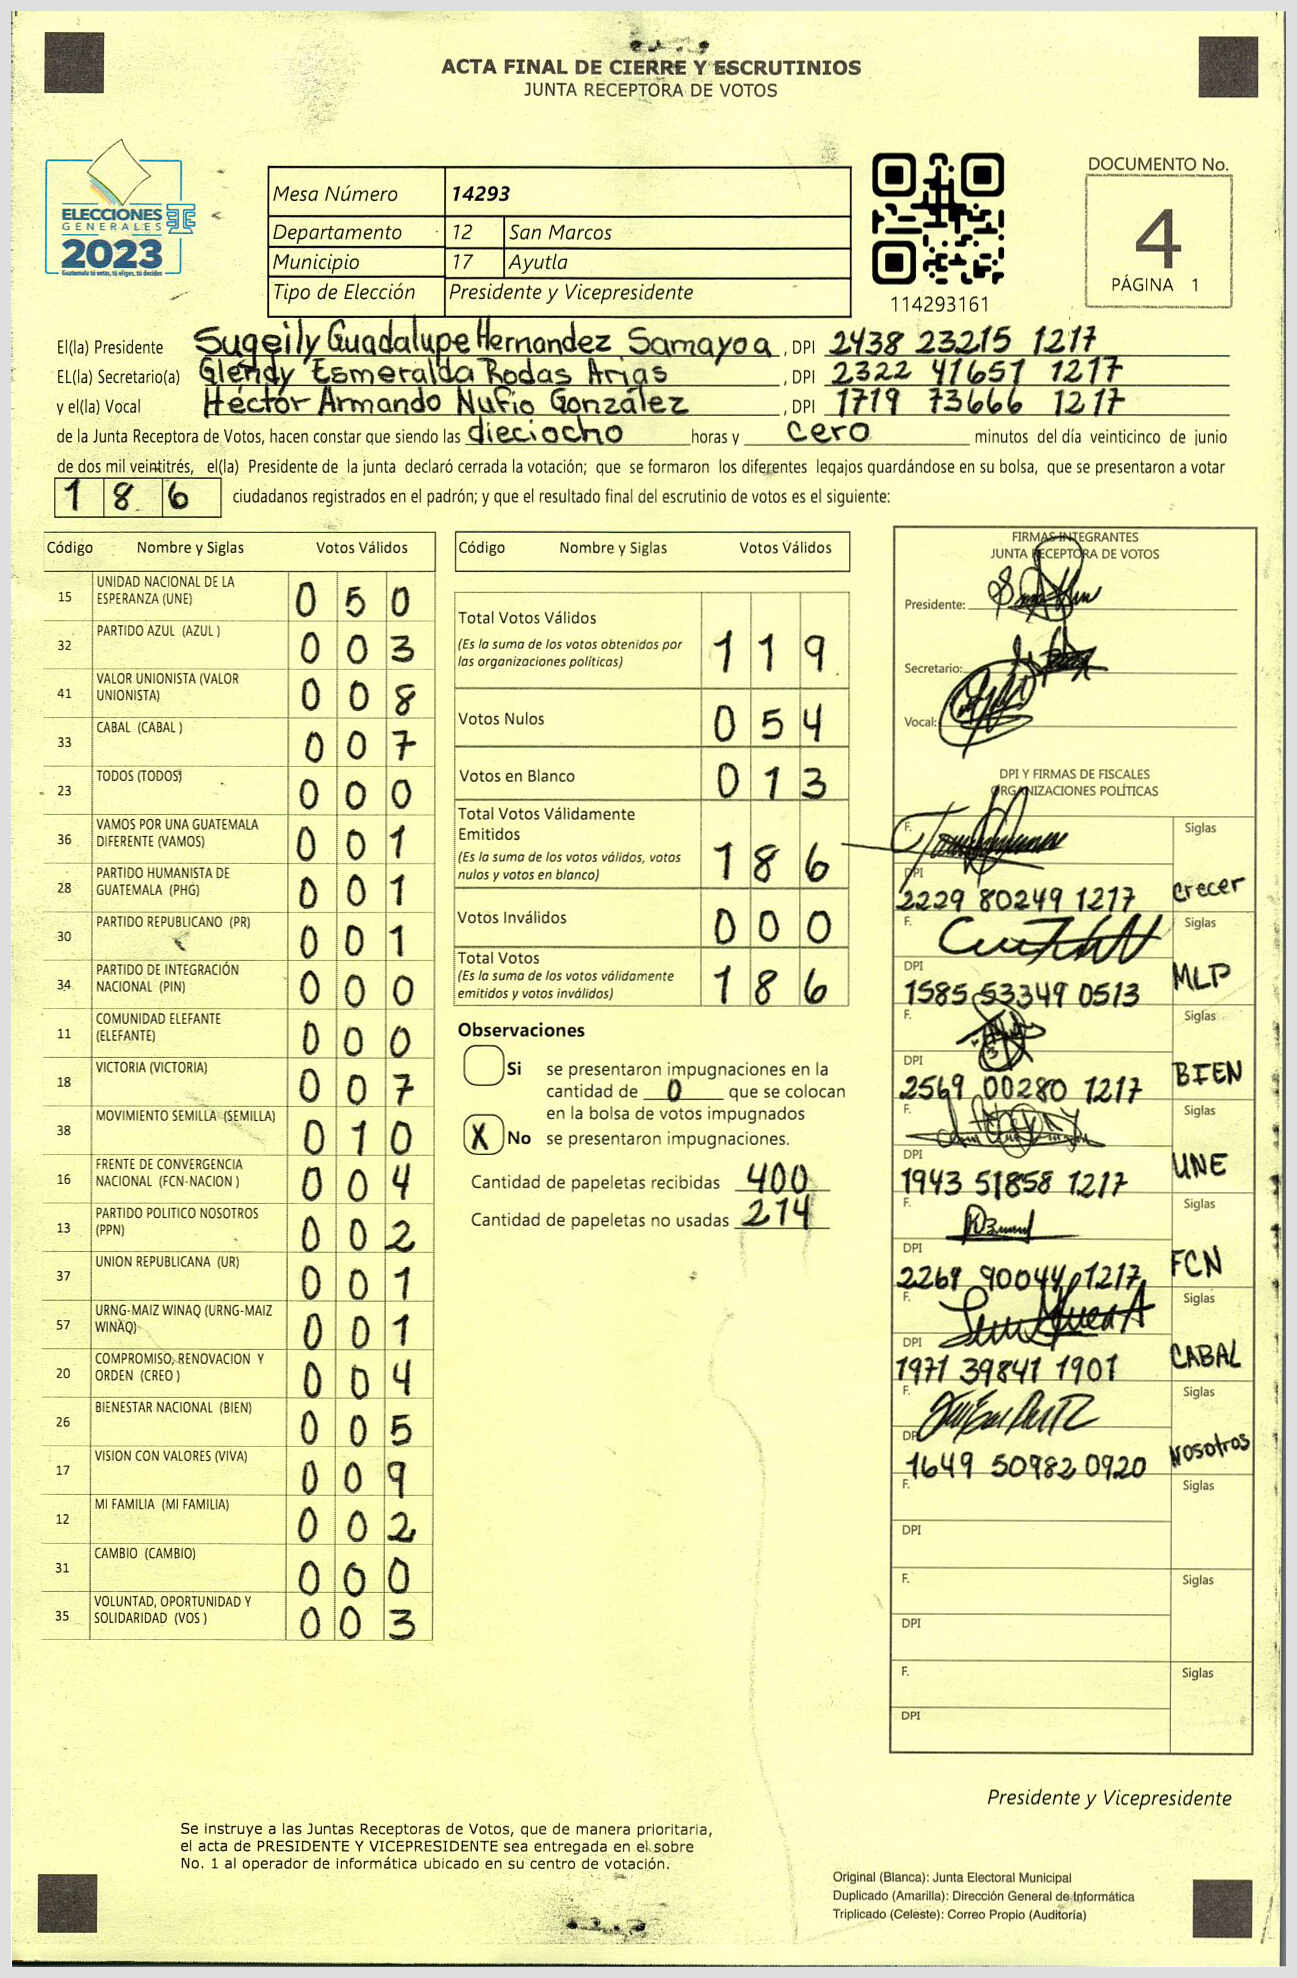 ACTA FINAL DE CIERRE Y ESCRUTINIOS
JUNTA RECEPTORA DE VOTOS
ELECCIONES
GENERALES
2023
Guatemala tú votas, tú eliges, tú decides
Mesa Número 14293
Departamento 12 San Marcos
Municipio 17 Ayutla
Tipo de Elección Presidente y Vicepresidente
114293161
DOCUMENTO No.
4
PÁGINA 1
El(la) Presidente Sugeily Guadalupe Hernandez Samayoa, DPI 2438 23215 1217
EL(la) Secretario(a) Glendy Esmeralda Rodas Arias, DPI 2322 41651 1217
y el(la) Vocal Héctor Armando Nufio González, DPI 1719 73666 1217
de la Junta Receptora de Votos, hacen constar que siendo las dieciocho horas y cero minutos del día veinticinco de junio
de dos mil veintitrés, el(la) Presidente de la junta declaró cerrada la votación; que se formaron los diferentes legajos guardándose en su bolsa, que se presentaron a votar
186 ciudadanos registrados en el padrón; y que el resultado final del escrutinio de votos es el siguiente:
Código Nombre y Siglas Votos Válidos
15 UNIDAD NACIONAL DE LA ESPERANZA (UNE) 050
32 PARTIDO AZUL (AZUL ) 003
41 VALOR UNIONISTA (VALOR UNIONISTA) 008
33 CABAL (CABAL ) 007
23 TODOS (TODOS) 000
36 VAMOS POR UNA GUATEMALA DIFERENTE (VAMOS) 001
28 PARTIDO HUMANISTA DE GUATEMALA (PHG) 001
30 PARTIDO REPUBLICANO (PR) 001
34 PARTIDO DE INTEGRACIÓN NACIONAL (PIN) 000
11 COMUNIDAD ELEFANTE (ELEFANTE) 000
18 VICTORIA (VICTORIA) 007
38 MOVIMIENTO SEMILLA (SEMILLA) 010
16 FRENTE DE CONVERGENCIA NACIONAL (FCN-NACION ) 004
13 PARTIDO POLITICO NOSOTROS (PPN) 002
37 UNION REPUBLICANA (UR) 001
57 URNG-MAIZ WINAQ (URNG-MAIZ WINAQ) 001
20 COMPROMISO, RENOVACION Y ORDEN (CREO ) 004
26 BIENESTAR NACIONAL (BIEN) 005
17 VISION CON VALORES (VIVA) 009
12 MI FAMILIA (MI FAMILIA) 002
31 CAMBIO (CAMBIO) 000
35 VOLUNTAD, OPORTUNIDAD Y SOLIDARIDAD (VOS ) 003
Código Nombre y Siglas Votos Válidos
Total Votos Válidos 119
(Es la suma de los votos obtenidos por
las organizaciones políticas)
Votos Nulos 054
Votos en Blanco 013
Total Votos Válidamente
Emitidos 186
(Es la suma de los votos válidos, votos
nulos y votos en blanco)
Votos Inválidos 000
Total Votos 186
(Es la suma de los votos válidamente
emitidos y votos inválidos)
Observaciones
Si se presentaron impugnaciones en la
cantidad de 0 que se colocan
en la bolsa de votos impugnados
X No se presentaron impugnaciones.
Cantidad de papeletas recibidas 400
Cantidad de papeletas no usadas 214
FIRMAS INTEGRANTES
JUNTA RECEPTORA DE VOTOS
Presidente:
Secretario:
Vocal:
DPI Y FIRMAS DE FISCALES
ORGANIZACIONES POLÍTICAS
F. Siglas
DPI 2229 80249 1217 Crecer
F. Siglas
DPI 1585 53349 0513 MLP
F. Siglas
DPI 2569 00280 1217 BIEN
F. Siglas
DPI 1943 51858 1217 UNE
F. Siglas
DPI 2269 90044 1217 FCN
F. Siglas
DPI 1971 39841 1901 CABAL
F. Siglas
DPI 1649 50982 0920 Nosotros
F. Siglas
DPI
F. Siglas
DPI
F. Siglas
DPI
Presidente y Vicepresidente
Se instruye a las Juntas Receptoras de Votos, que de manera prioritaria,
el acta de PRESIDENTE Y VICEPRESIDENTE sea entregada en el sobre
No. 1 al operador de informática ubicado en su centro de votación.
Original (Blanca): Junta Electoral Municipal
Duplicado (Amarilla): Dirección General de Informática
Triplicado (Celeste): Correo Propio (Auditoría)